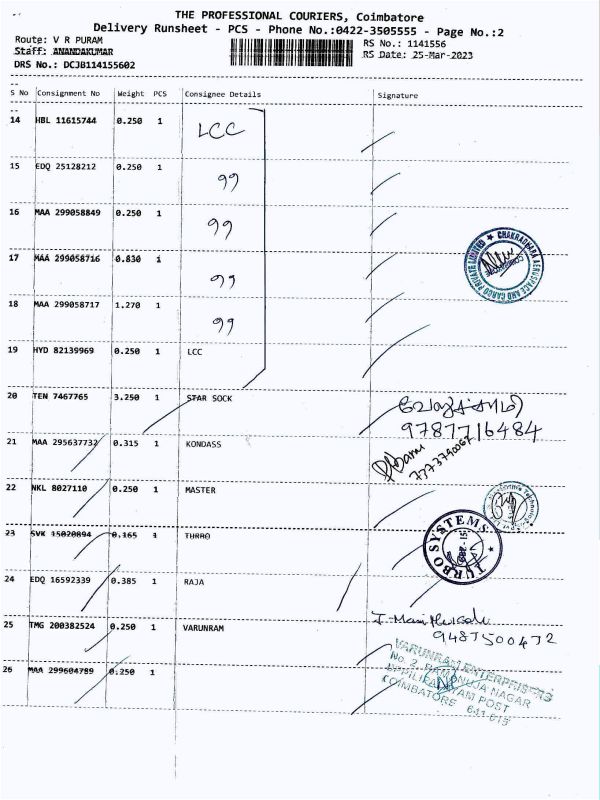 THE PROFESSIONAL COURIERS, Coimbatore
Delivery Runsheet - PCS - Phone No.:0422-3505555 - Page No.:2
Route: V R PURAM RS No.: 1141556
Staff: ANANDAKUMAR RS Date: 25-Mar-2023
DRS No.: DCJB114155602
S No Consignment No Weight PCS Consignee Details Signature
14 HBL 11615744 0.250 1 LCC
15 EDQ 25128212 0.250 1 99
16 MAA 299058849 0.250 1 99
17 MAA 299058716 0.830 1 99
CHAKRADHARA AEROSPACE AND CARGO PRIVATE LIMITED
COIMBATORE
18 MAA 299058717 1.270 1 99
19 HYD 82139969 0.250 1 LCC
20 TEN 7467765 3.250 1 STAR SOCK
9787716484
21 MAA 295637732 0.315 1 KONDASS
7373790067
22 NKL 8027110 0.250 1 MASTER
23 SVK 15020894 0.165 1 TURBO
TURBO SYSTEMS
24 EDQ 16592339 0.385 1 RAJA
25 TMG 200382524 0.250 1 VARUNRAM
9487500472
26 MAA 299604789 0.250 1
VARUNRAM ENTERPRISES
No. 2, RAMANUJA NAGAR
UPPILIPALAYAM POST
COIMBATORE 641 015